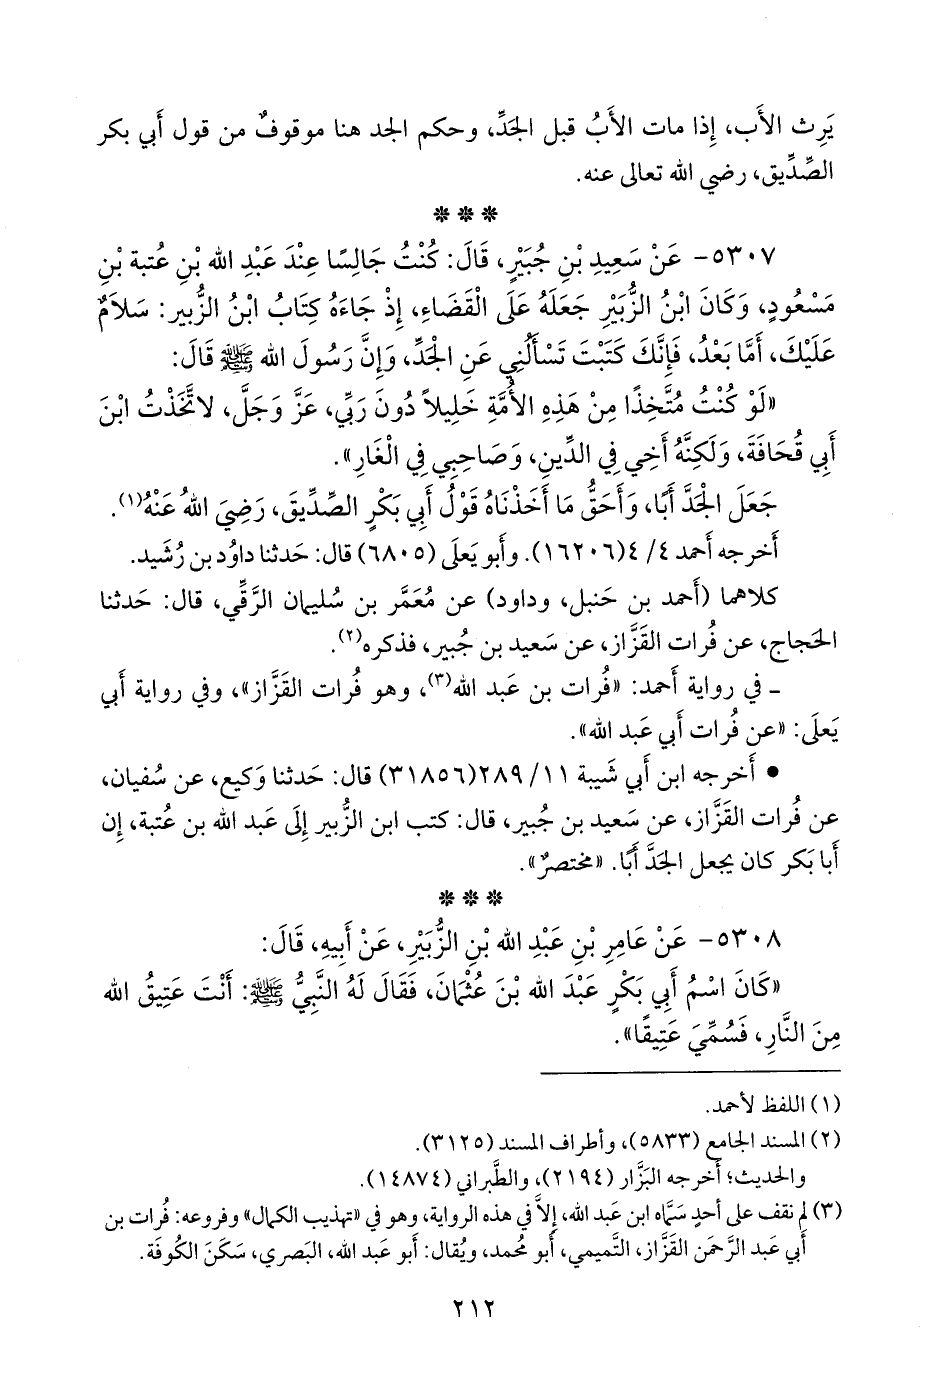 يَرِث الأَب، إِذا مات الأَبُ قبل الجَدِّ، وحكم الجد هنا موقوفٌ من قول أَبي بكر
الصِّدِّيق، رضي الله تعالى عنه.
* * *
٥٣٠٧- عَنْ سَعِيدِ بْنِ جُبَيْرٍ، قَالَ: كُنْتُ جَالِسًا عِنْدَ عَبْدِ الله بْنِ عُتبة بْنِ
مَسْعُودٍ، وَكَانَ ابْنُ الزُّبَيْرِ جَعَلَهُ عَلَى الْقَضَاءِ، إِذْ جَاءَهُ كِتَابُ ابْنُ الزُّبير: سَلاَمٌ
عَلَيْكَ، أَمَّا بَعْدُ، فَإِنَّكَ كَتَبْتَ تَسْأَلُنِي عَنِ الْجَدِّ، وَإِنَّ رَسُولَ الله ﷺ قَالَ:
«لَوْ كُنْتُ مُتَّخِذًا مِنْ هَذِهِ الأُمَّةِ خَلِيلاً دُونَ رَبِّي، عَزَّ وَجَلَّ، لاَتَّخَذْتُ ابْنَ
أَبِي قُحَافَةَ، وَلَكِنَّهُ أَخِي فِي الدِّينِ، وَصَاحِبِي فِي الْغَارِ».
جَعَلَ الْجَدَّ أَبًا، وَأَحَقُّ مَا أَخَذْنَاهُ قَوْلُ أَبِي بَكْرٍ الصِّدِّيقَ، رَضِيَ اللهُ عَنْهُ(١).
أَخرجه أَحمد ٤/ ٤(١٦٢٠٦). وأَبو يَعلَى (٦٨٠٥) قال: حَدثنا داوُد بن رُشَيد.
كلاهما (أَحمد بن حَنبل، وداود) عن مُعَمَّر بن سُليمان الرَّقِّي، قال: حَدثنا
الحَجاج، عن فُرات القَزَّاز، عن سَعيد بن جُبير، فذكره(٢).
ـ في رواية أَحمد: «فُرات بن عَبد الله(٣)، وهو فُرات القَزَّاز»، وفي رواية أَبي
يَعلَى: «عن فُرات أَبي عَبد الله».
• أَخرجه ابن أَبي شَيبة ١١/ ٢٨٩(٣١٨٥٦) قال: حَدثنا وَكيع، عن سُفيان،
عن فُرات القَزَّاز، عن سَعيد بن جُبير، قال: كتب ابن الزُّبير إِلَى عَبد الله بن عُتبة، إِن
أَبا بَكر كان يجعل الجَدَّ أَبًا. «مختصرٌ».
* * *
٥٣٠٨- عَنْ عَامِرِ بْنِ عَبْدِ الله بْنِ الزُّبَيْرِ، عَنْ أَبِيهِ، قَالَ:
«كَانَ اسْمُ أَبِي بَكْرٍ عَبْدَ الله بْنَ عُثْمَانَ، فَقَالَ لَهُ النَّبِيُّ ﷺ: أَنْتَ عَتِيقُ الله
مِنَ النَّارِ، فَسُمِّيَ عَتِيقًا».
(١) اللفظ لأحمد.
(٢) المسند الجامع (٥٨٣٣)، وأطراف المسند (٣١٢٥).
والحديث؛ أَخرجه البَزَّار (٢١٩٤)، والطَّبراني (١٤٨٧٤).
(٣) لم نقف على أَحدٍ سَمَّاه ابن عَبد الله، إِلاَّ في هذه الرواية، وهو في «تهذيب الكمال» وفروعه: فُرات بن
أَبي عَبد الرَّحمَن القَزَّاز، التَّميمي، أَبو محُمد، ويُقال: أَبو عَبد الله، البَصري، سَكَنَ الكُوفَة.
٢١٢